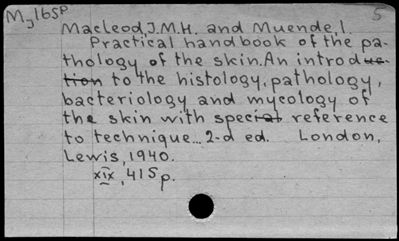 My165p
5
Macleod, J.M.H. and Muende, I.
Practical handbook of the pa-
thology of the skin. An introduc-
tion to the histology, pathology,
bacteriology and mycology of
the skin with special reference
to technique... 2-d ed. London,
Lewis, 1940.
xix, 415 p.